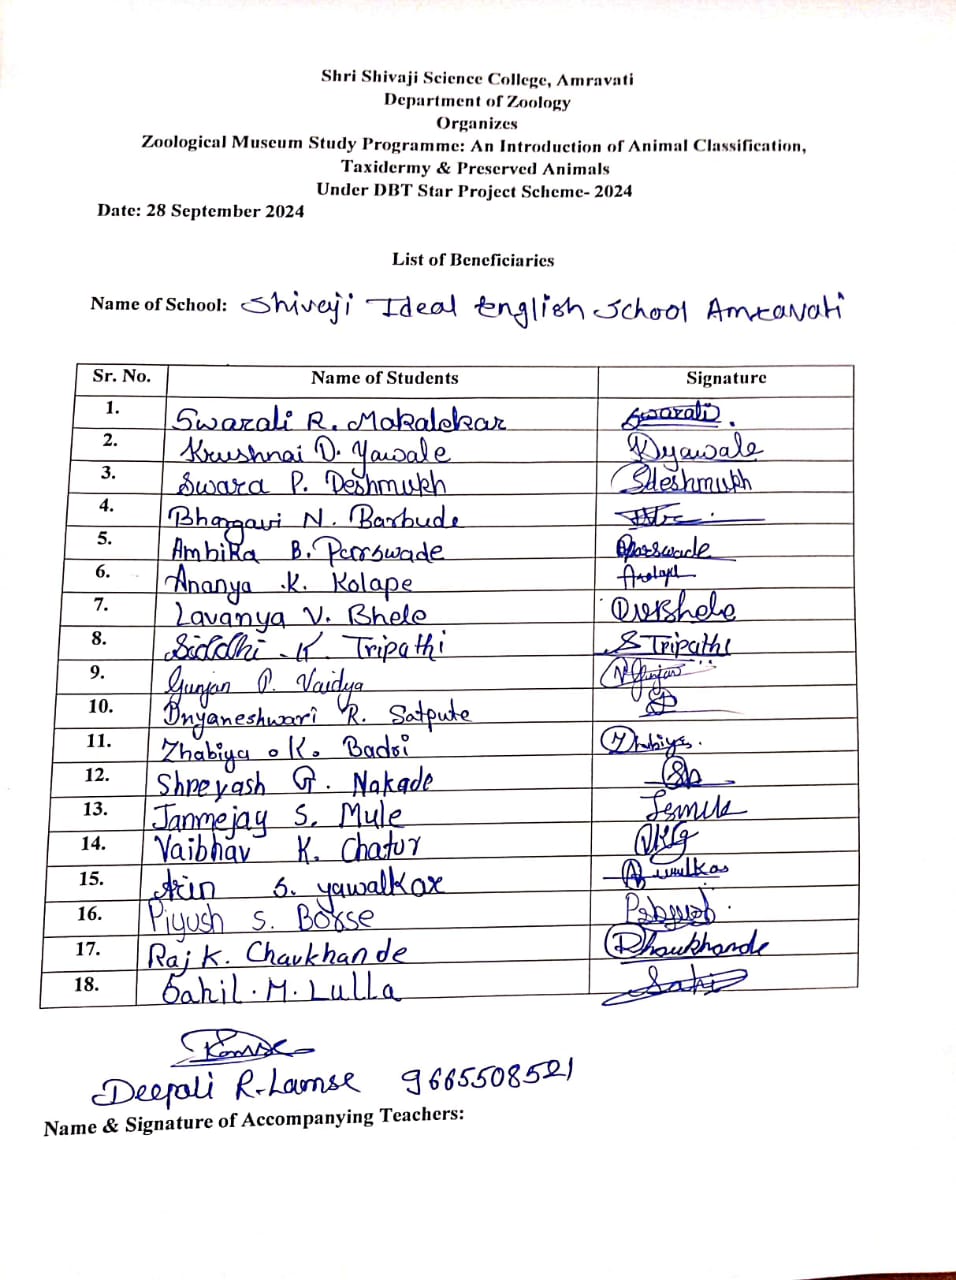 Shri Shivaji Science College, Amravati
Department of Zoology
Organizes
Zoological Museum Study Programme: An Introduction of Animal Classification,
Taxidermy & Preserved Animals
Under DBT Star Project Scheme- 2024
Date: 28 September 2024
List of Beneficiaries
Name of School: Shivaji Ideal English School Amravati
Sr. No. Name of Students Signature
1. Swarali R. Makalekar Swarali.
2. Krushnai D. Yawale KDyawale
3. Swara P. Deshmukh SDeshmukh
4. Bhargavi N. Barbude
5. Ambika B. Porswade Bporswade
6. Ananya .K. Kolape
7. Lavanya V. Bhele
8. Siddhi .K Tripathi S Tripathi
9. Gunjan P. Vaidya Gunjan
10. Dnyaneshwari R. Satpute
11. Zhabiya .K. Badri Zhabiya.
12. Shreyash G. Nakade
13. Janmejay S. Mule
14. Vaibhav K. Chatur
15. Arin S. yawalkar
16. Piyush S. Borse
17. Raj K. Chaukhande Rhaukhande
18. Sahil.M.Lulla Sahil
Deepali R.Lamse 9665508521
Name & Signature of Accompanying Teachers: